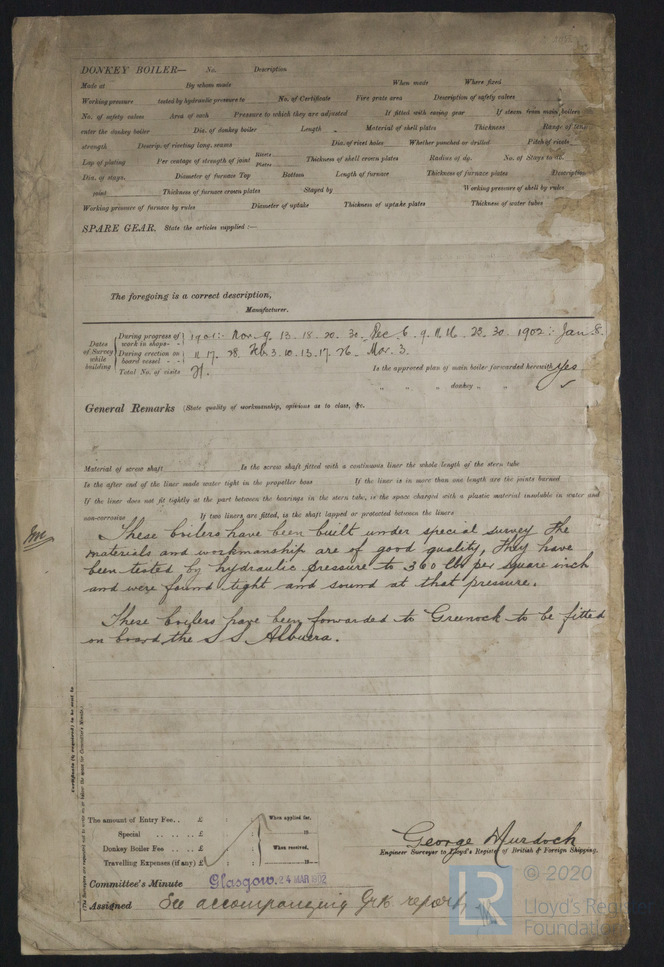 DONKEY BOILER— No. Description
Made at By whom made When made Where fixed
Working pressure tested by hydraulic pressure to No. of Certificate Fire grate area Description of safety valves
No. of safety valves Area of each Pressure to which they are adjusted If fitted with easing gear If steam from main boilers
enter the donkey boiler Dia. of donkey boiler Length Material of shell plates Thickness Range of tensile
strength Descrip. of riveting long. seams Dia. of rivet holes Whether punched or drilled Pitch of rivets
Lap of plating Per centage of strength of joint Rivets Plates Thickness of shell crown plates Radius of do. No. of Stays to do.
Dia. of stays. Diameter of furnace Top Bottom Length of furnace Thickness of furnace plates Description
joint Thickness of furnace crown plates Stayed by Working pressure of shell by rules
Working pressure of furnace by rules Diameter of uptake Thickness of uptake plates Thickness of water tubes
SPARE GEAR. State the articles supplied:—
The foregoing is a correct description,
Manufacturer.
Dates of Survey while building
During progress of work in shops - - 1901:- Nov. 9. 13. 18. 20. 30. Dec. 6. 9. 11. 16. 23. 30. 1902:- Jan. 8.
During erection on board vessel - - 11. 17. 28. Feb. 3. 10. 13. 17. 26. Mar. 3.
Total No. of visits 21. Is the approved plan of main boiler forwarded herewith Yes
" " " donkey " "
General Remarks (State quality of workmanship, opinions as to class, &c.
Material of screw shaft Is the screw shaft fitted with a continuous liner the whole length of the stern tube
Is the after end of the liner made water tight in the propeller boss If the liner is in more than one length are the joints burned
If the liner does not fit tightly at the part between the bearings in the stern tube, is the space charged with a plastic material insoluble in water and
non-corrosive If two liners are fitted, is the shaft lapped or protected between the liners
These boilers have been built under special survey the
materials and workmanship are of good quality, they have
been tested by hydraulic pressure to 360 lbs per square inch
and were found tight and sound at that pressure.
These boilers have been forwarded to Greenock to be fitted
on board the S S Albuera.
Certificate (if required) to be sent to
(The Surveyors are requested not to write on or below the space for Committee's Minute.)
The amount of Entry Fee.. £ : : When applied for,
Special .. .. .. £ : : 19
Donkey Boiler Fee .. .. £ : : When received,
Travelling Expenses (if any) £ : : 19
George Murdoch
Engineer Surveyor to Lloyd's Register of British & Foreign Shipping.
Committee's Minute Glasgow. 24 MAR 1902
Assigned See accompanying Grk report.
© 2020
LR
Lloyd's Register
Foundation